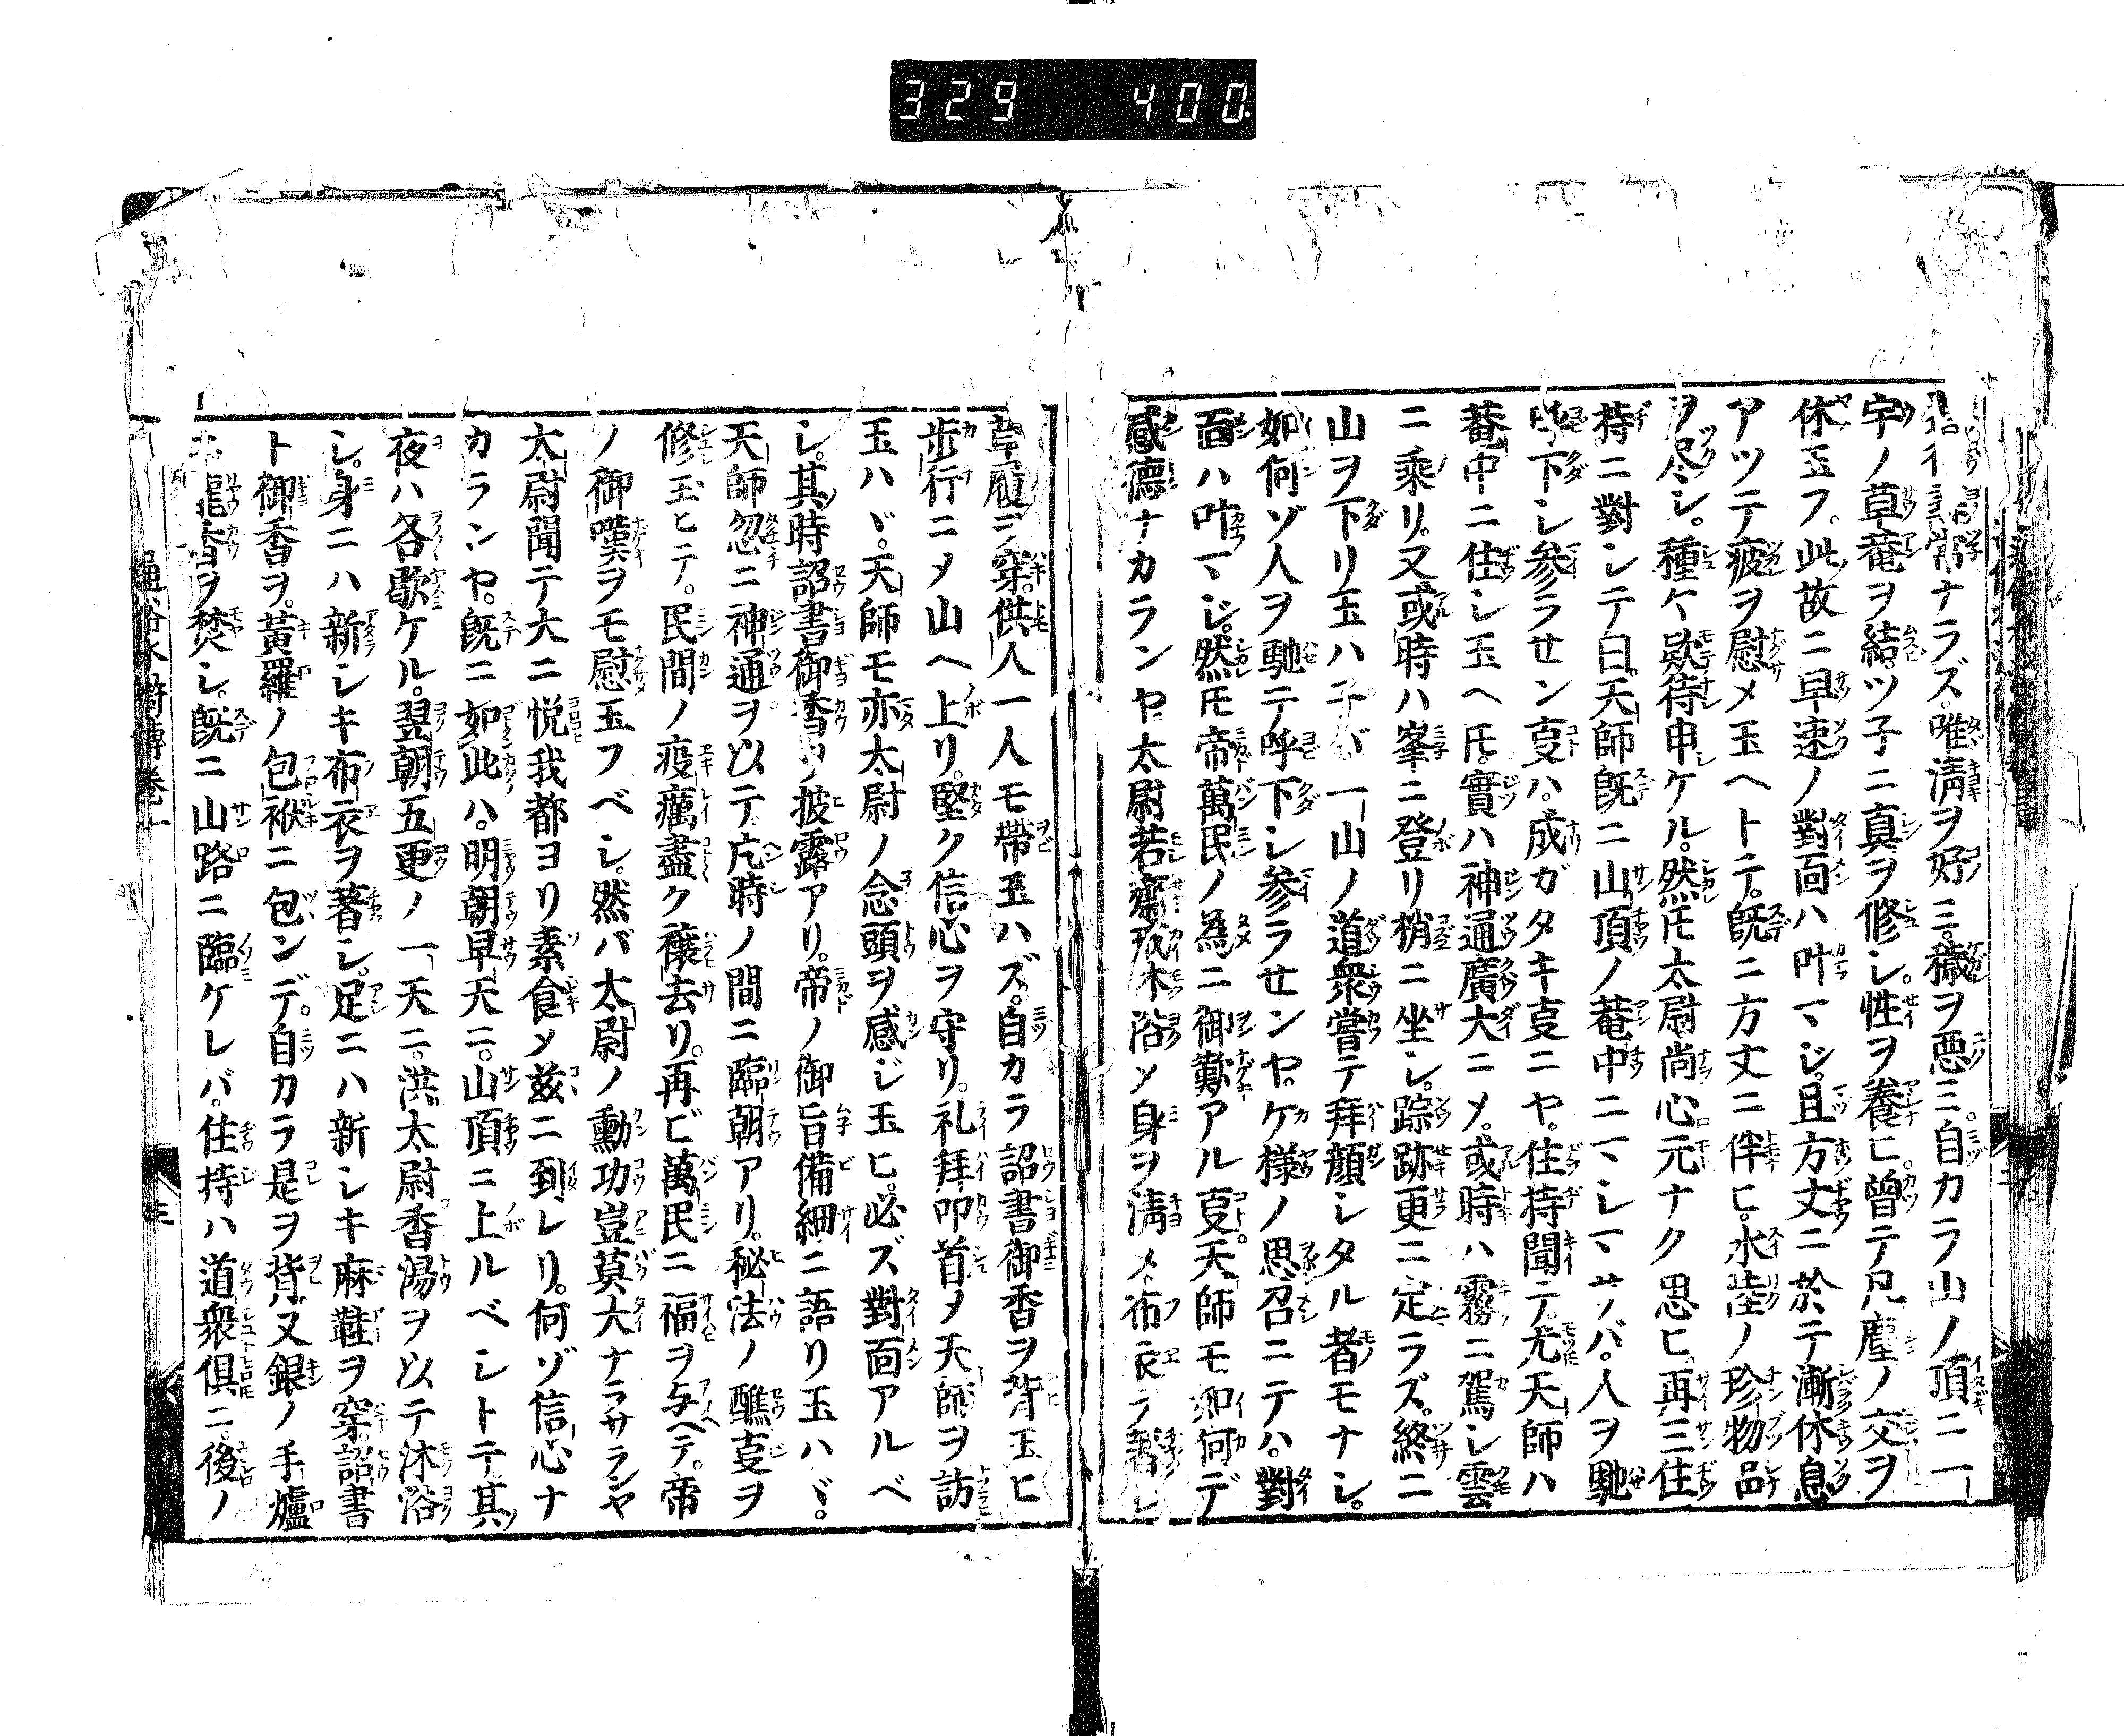 329 400
ナラズ。唯清ヲ好ミ。穢ヲ悪ミ。自カラ山ノ頂ニ一
宇ノ草菴ヲ結ツ子ニ真ヲ修シ。性ヲ養ヒ。曽テ凡塵ノ交ヲ
休玉フ。此故ニ早速ノ對面ハ叶マジ。且方丈ニ於テ漸休息
アツテ疲ヲ慰メ玉ヘトテ。既ニ方丈ニ伴ヒ。水陸ノ珍物品
ヲ尽シ。種々欵待申ケル。然𪜈太尉尚心元ナク思ヒ。再三住
持ニ對シテ曰。天師既ニ山頂ノ菴中ニマシマサバ。人ヲ馳
下シ参ラセン叓ハ。成ガタキ叓ニヤ。住持聞テ。尤天師ハ
菴中ニ住シ玉ヘ𪜈。實ハ神通廣大ニメ。或時ハ霧ニ駕シ雲
ニ乘リ。又或時ハ峯ニ登リ梢ニ坐シ。踪跡更ニ定ラズ。終ニ
山ヲ下リ玉ハ子バ一山ノ道衆嘗テ拜顔シタル者モナシ。
如何ゾ人ヲ馳テ呼下シ参ラセンヤ。ケ様ノ思召ニテハ。對
面ハ叶マジ。然𪜈帝萬民ノ為ニ御歎アル叓。天師モ如何デ
感德ナカランヤ。太尉若齋戒沐浴メ身ヲ清メ。布衣ヲ著シ
草履ヲ穿。供人一人モ帶玉ハズ。自カラ詔書御香ヲ背玉ヒ
歩行ニメ山ヘ上リ。堅ク信心ヲ守リ。礼拜叩首メ天師ヲ訪
玉ハヾ。天師モ亦太尉ノ念頭ヲ感ジ玉ヒ。必ズ對面アルベ
シ。其時詔書御香ヲ披露アリ。帝ノ御旨備細ニ語リ玉ハヾ。
天師忽ニ神通ヲ以テ。片時ノ間ニ臨朝アリ。秘法ノ醮叓ヲ
修玉ヒテ。民間ノ疫癘盡ク禳去リ。再ビ萬民ニ福ヲ与ヘテ。帝
ノ御嘆ヲモ慰玉フベシ。然バ太尉ノ勳功豈莫大ナラサランヤ
太尉聞テ大ニ悦我都ヨリ素食メ茲ニ到レリ。何ゾ信心ナ
カランヤ。既ニ如此ハ。明朝早天ニ。山頂ニ上ルベシトテ其
夜ハ各歇ケル。翌朝五更ノ一天ニ。洪太尉香湯ヲ以テ沐浴
シ。身ニハ新シキ布衣ヲ著シ。足ニハ新シキ麻鞋ヲ穿。詔書
ト御香ヲ。黃羅ノ包袱ニ包ンデ。自カラ是ヲ背。又銀ノ手爐
ニ龍香ヲ焚シ。既ニ山路ニ臨ケレバ。住持ハ道衆俱ニ。後ノ
水滸傳卷一 三